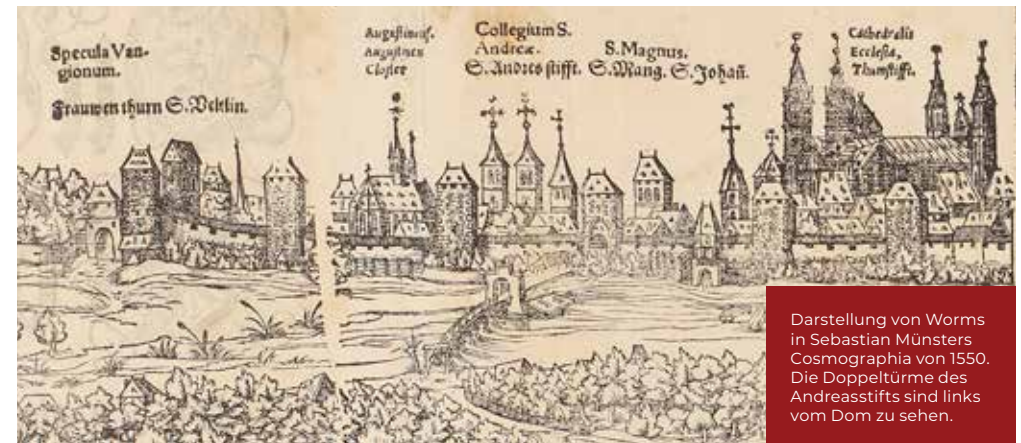 Specula Van-
gionum.
Frauwen thurn S. Veltin.
Augustinens.
Augustiner
Closter
Collegium S.
Andreæ.
S. Andres stifft.
S. Magnus.
S. Mang. S. Johañ.
Cathedralis
Ecclesia,
Thumstifft.
Darstellung von Worms
in Sebastian Münsters
Cosmographia von 1550.
Die Doppeltürme des
Andreasstifts sind links
vom Dom zu sehen.